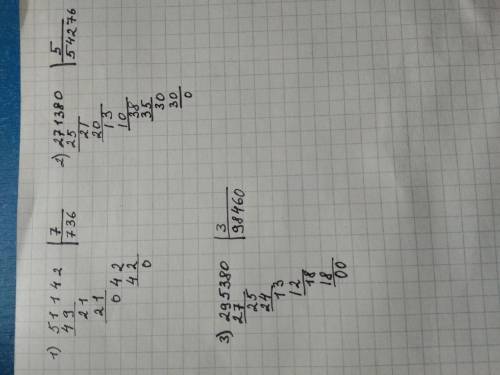 1) 51142 | 7
49 736
21
21
0 42
42
0
2) 271380 | 5
25 54276
21
20
13
10
38
35
30
30
0
3) 295380 | 3
27 98460
25
24
13
12
18
18
00